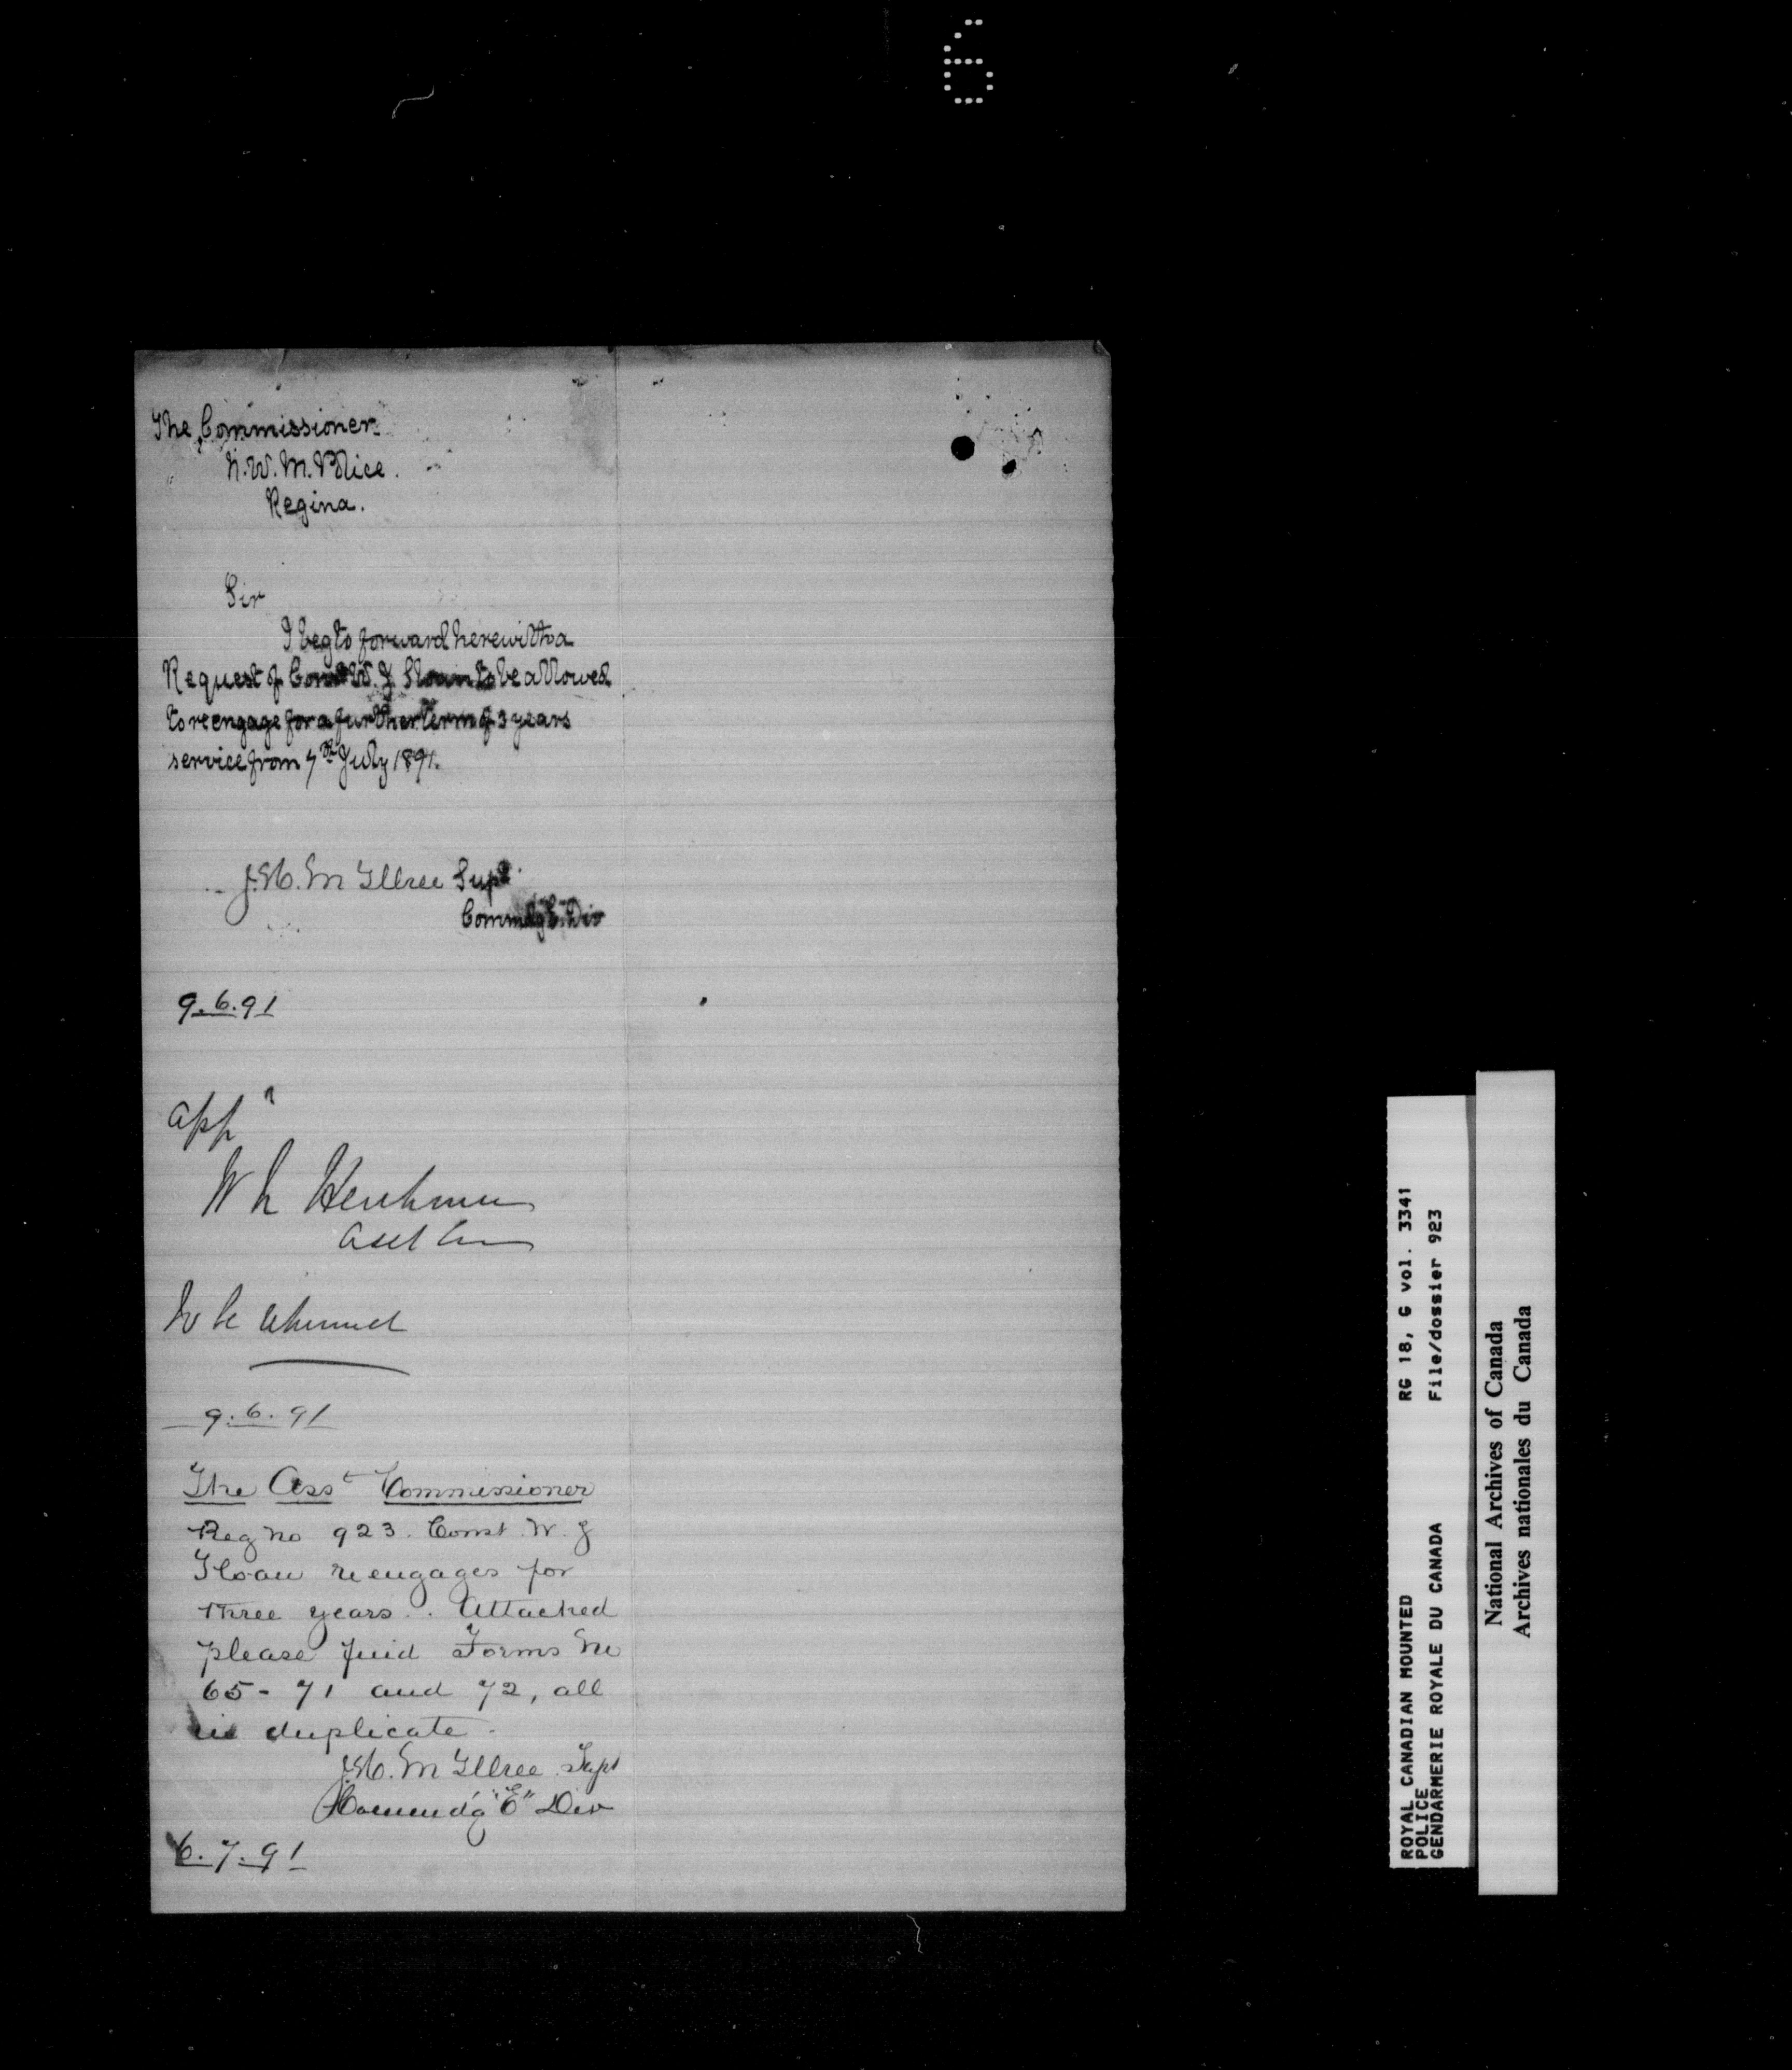 6
The Commissioner
N.W.M. Police.
Regina.
Sir
I beg to forward herewith a
Request of Const W. J Sloan to be allowed
to reengage for a further term of 3 years
service from 7th July 1891.
J.H. McIllree Supt
Commdg "E" Div
9.6.91
app d
W M Herchmer
Asst Com
9.6.91
The Asst Commissioner
Reg No 923. Const W. J
Sloan reengages for
three years. Attached
please find Forms No
65 - 71 and 72, all
in duplicate.
J.H. McIllree Supt
Commdg "E" Div
6.7.91
ROYAL CANADIAN MOUNTED
POLICE
GENDARMERIE ROYALE DU CANADA
RG 18, G vol. 3341
File/dossier 923
National Archives of Canada
Archives nationales du Canada